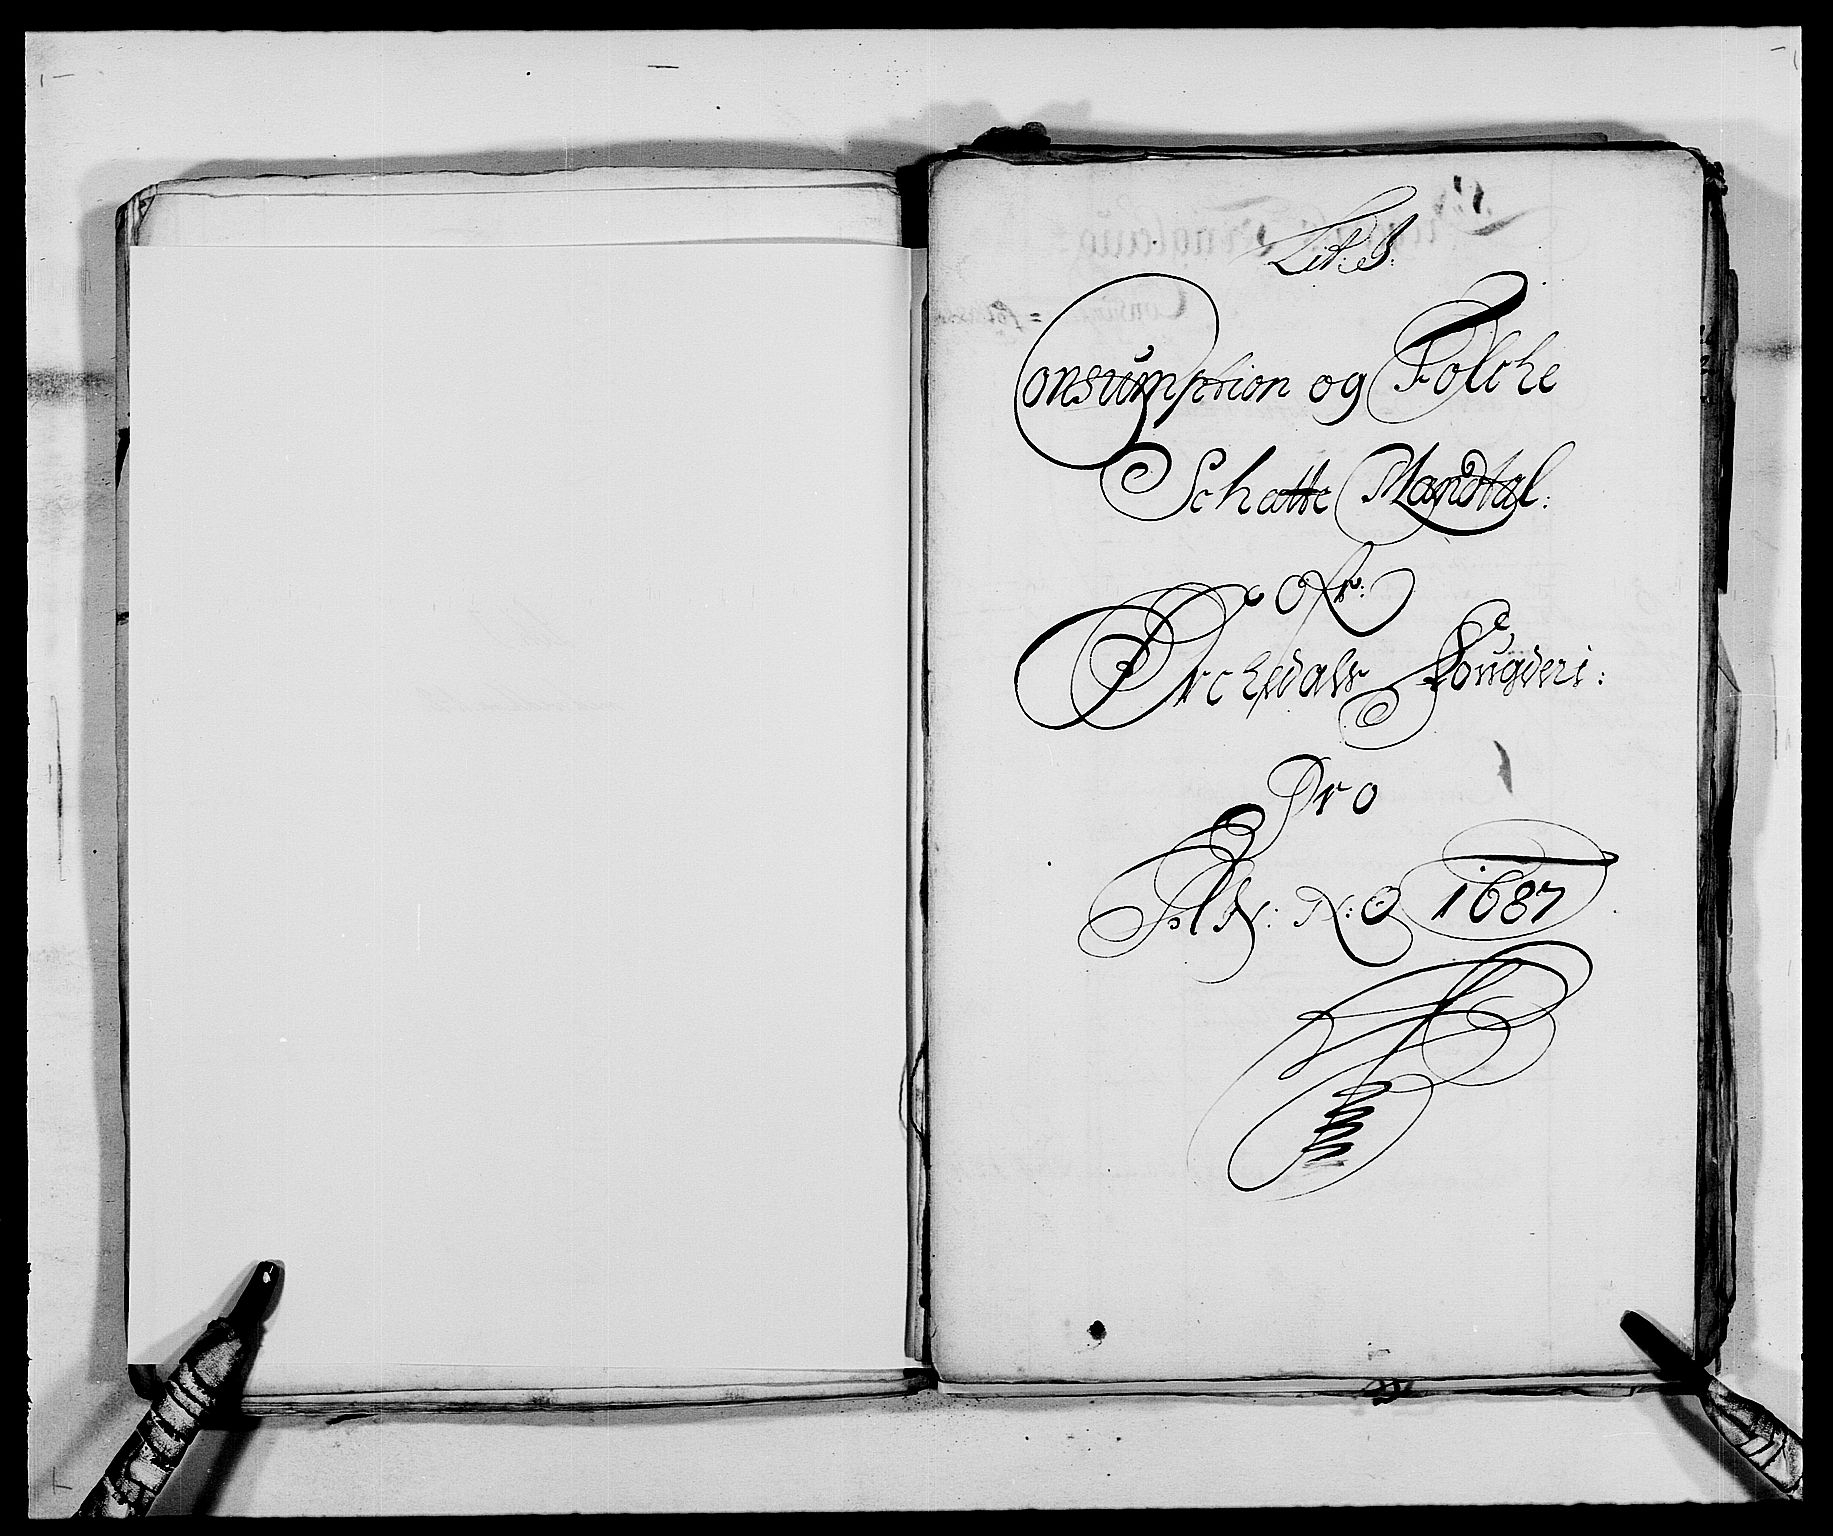 Lit: J:
Consumption og Folche
Schatte Mandtal:
Ofr:
Orchedals Fougderi:
Pro
A: N: O 1687